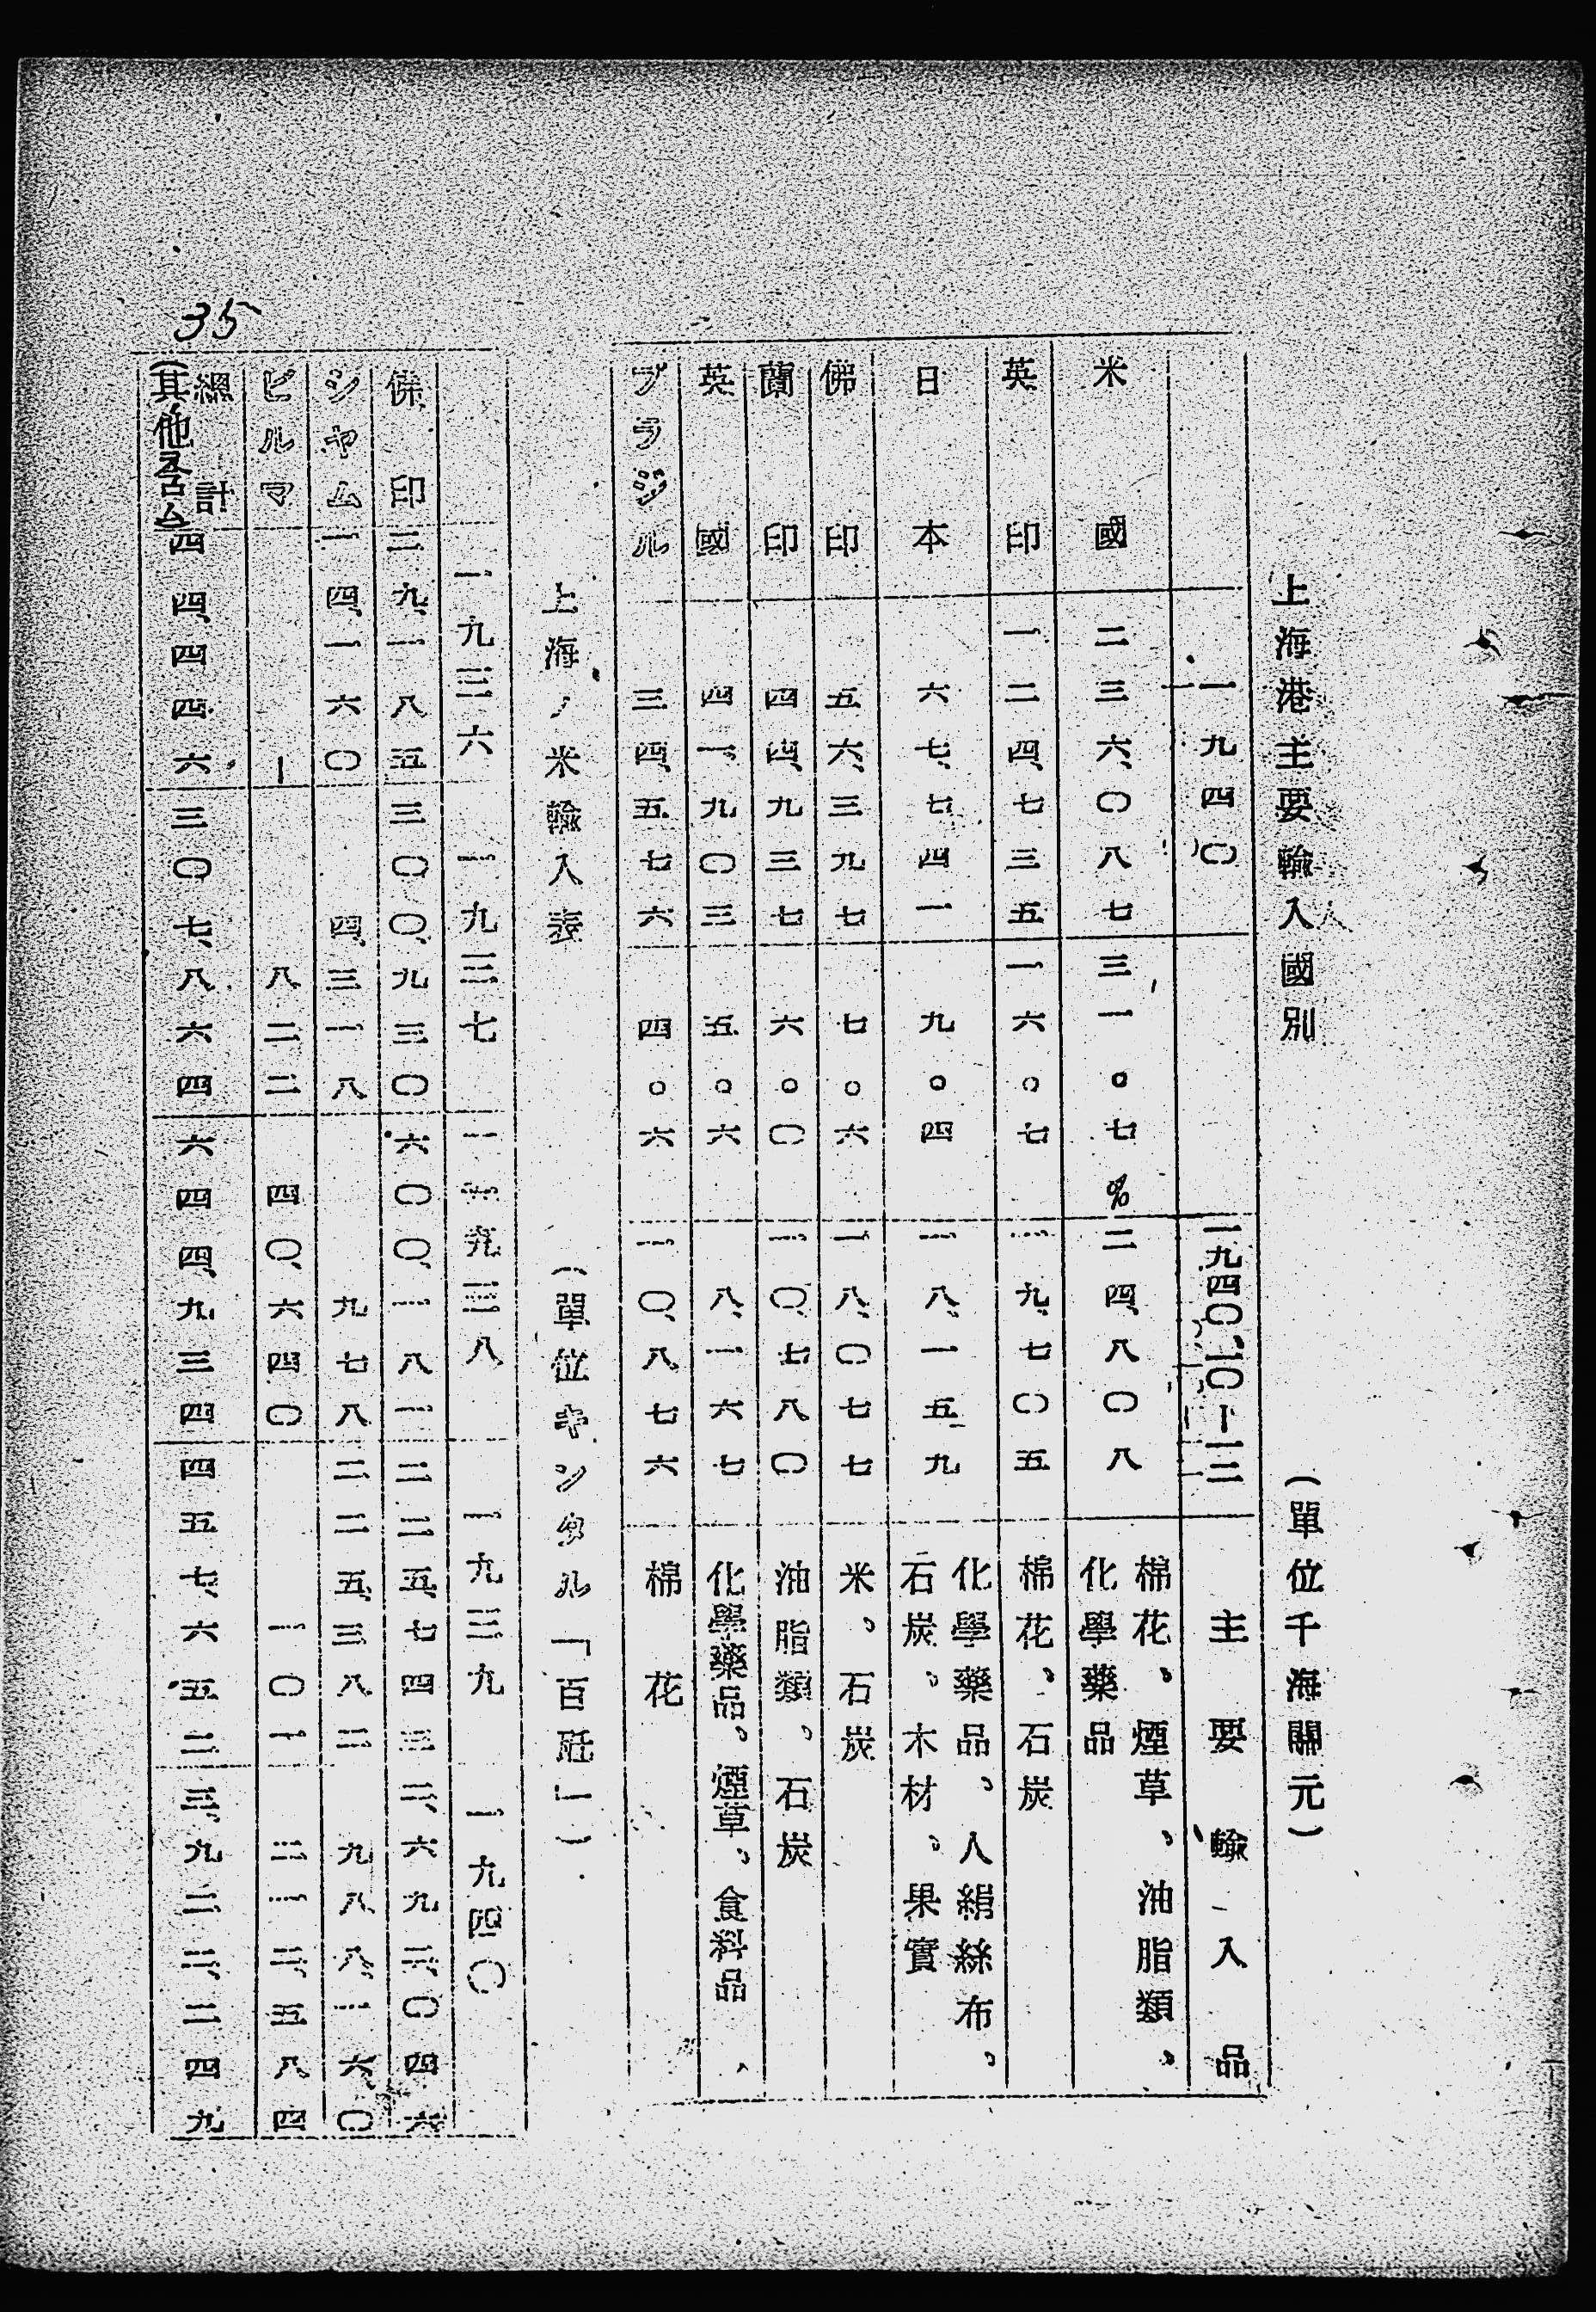 上海港主要輸入國別 (單位千海關元)
一九四〇 一九四〇、一〇—一二 主要輸入品
米國 二三六、〇八七 三一。七% 二四、八〇八 棉花、煙草、油脂類、
化學藥品
英印 一二四、七三五 一六。七 一九、七〇五 棉花、石炭
日本 六七、七四一 九。四 一八、一五九 化學藥品、人絹絲布、
石炭、木材、果實
佛印 五六、三九七 七。六 一八、〇七七 米、石炭
蘭印 四四、九三七 六。〇 一〇、七八〇 油脂類、石炭
英國 四一、九〇三 五。六 八、一六七 化學藥品、煙草、食料品、
ブラジル 三四、五七六 四。六 一〇、八七六 棉花
上海ノ米輸入表 (單位キンタル「百瓩」)
一九三六 一九三七 一九三八 一九三九 一九四〇
佛印 二九、一八五 三〇〇、九三〇 六〇〇、一八一 二二五、七四三 二、六九二、〇四六
シヤム 一四、一六〇 四、三一八 九七八 二二五、三八二 九八八、一六〇
ビルマ — 八二二 四〇、六四〇 一〇一 二一二、五八四
總計 四四、四四六 三〇七、八六四 六四四、九三四 四五七、六五二 三、九二二、二四九
(其他含ム)
35